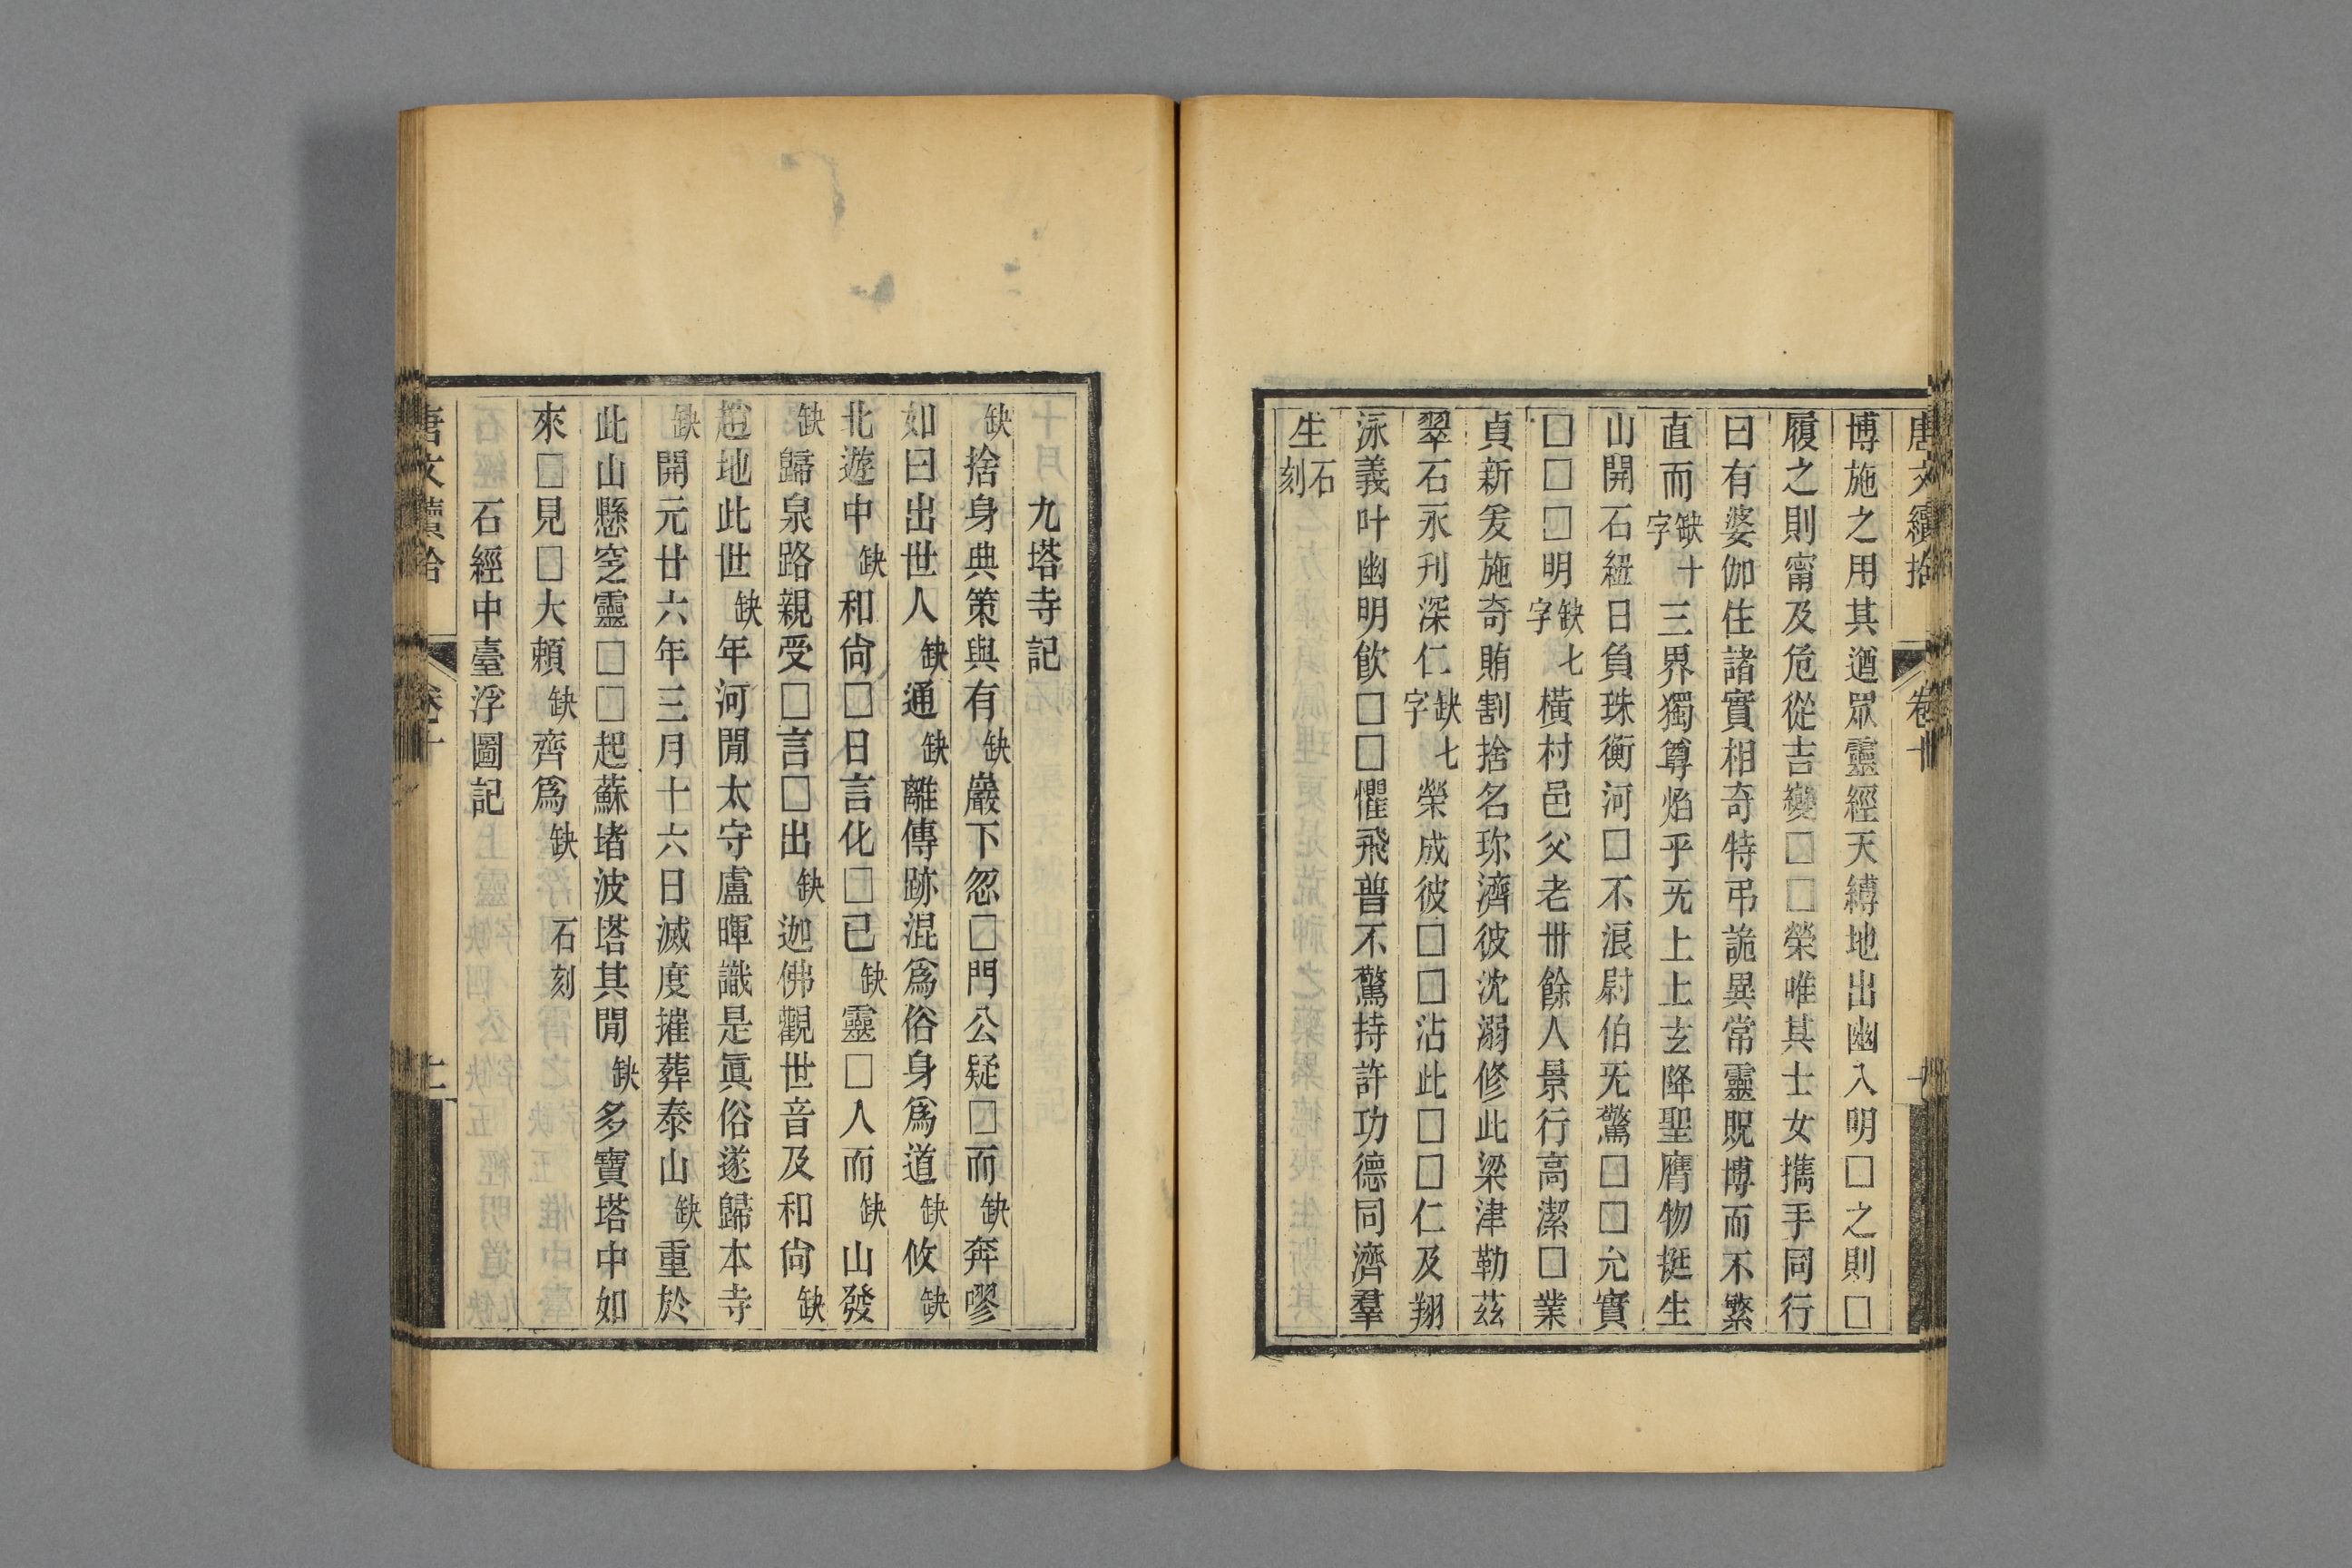 唐文續拾 卷十
博施之用其遒眾靈經天縛地出幽入明□之則□
履之則甯及危從吉變□□榮唯其士女攜手同行
曰有婆伽住諸實相奇特弔詭異常靈貺博而不繁
直而缺十字三界獨尊焰乎旡上上上玄降聖膺物挺生
山開石紐日負珠衡河□不浪尉伯旡驚□□允實
□□□明缺七字橫村邑父老卌餘人景行高潔□業
貞新爰施奇賄割捨名珎濟彼沈溺修此梁津勒茲
翠石永刋深仁缺七字榮成彼□□沾此□□仁及翔
泳義叶幽明飲□□懼飛普不驚持許功德同濟羣
生石刻
九塔寺記
缺捨身典策與有缺巖下忽□門公疑□而缺奔嘐
如曰出世人缺通缺離傳跡混爲俗身爲道缺攸缺
北遊中缺和尙□日言化□已缺靈□人而缺山發
缺歸泉路親受□言□出缺迦佛觀世音及和尙缺
趙地此世缺年河閒太守盧暉識是眞俗遂歸本寺
缺開元廿六年三月十六日滅度摧葬泰山缺重於
此山懸窆靈□□起蘇堵波塔其閒缺多寶塔中如
來□見□大頼缺齊爲缺石刻
石經中臺浮圖記
唐文續拾 卷十